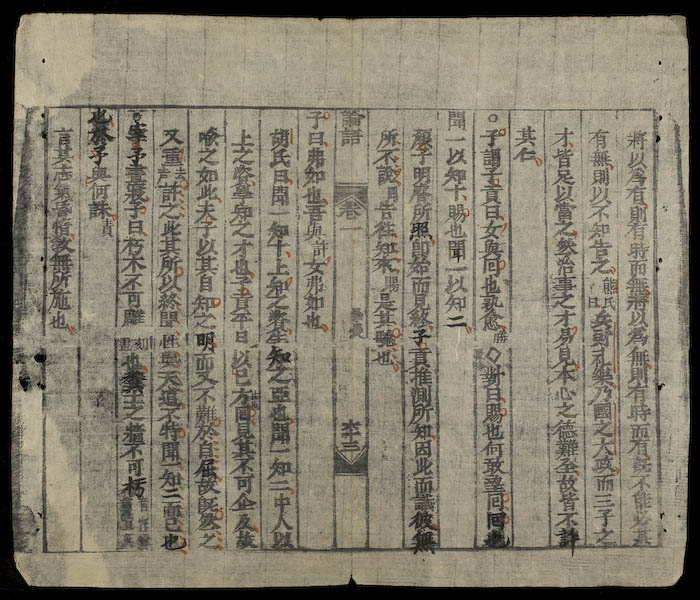 將以爲有則有時而無將以爲無則有時而有旣不能必其
有無則以不知告之熊氏曰兵則才樂乃國之大政而三子之
才皆足以當之然治事之才易見本心之德難全故皆不許
其仁
○子謂子貢曰女與回也孰愈勝◇對曰賜也何敢望回回也
聞一以知十賜也聞一以知二
顔子明睿所照卽始而見終子貢推測所知因此而識彼無
所不說回告往知來賜是其驗也
論語 卷一
子曰弗如也吾與許女弗如也
胡氏曰聞一知十上知之資生知之亞也聞一知二中人以
上之資學知之才也子貢平日以己方回見其不可企及故
喩之如此夫子以其自知之明而又不難於自屈故旣然之
又重去言許之此其所以終聞性與天道不特聞一知二而已也
○宰予晝寢子曰朽木不可雕刻畫也糞土之牆不可杇
也於予與何誅責
言其志氣昏惰敎無所施也